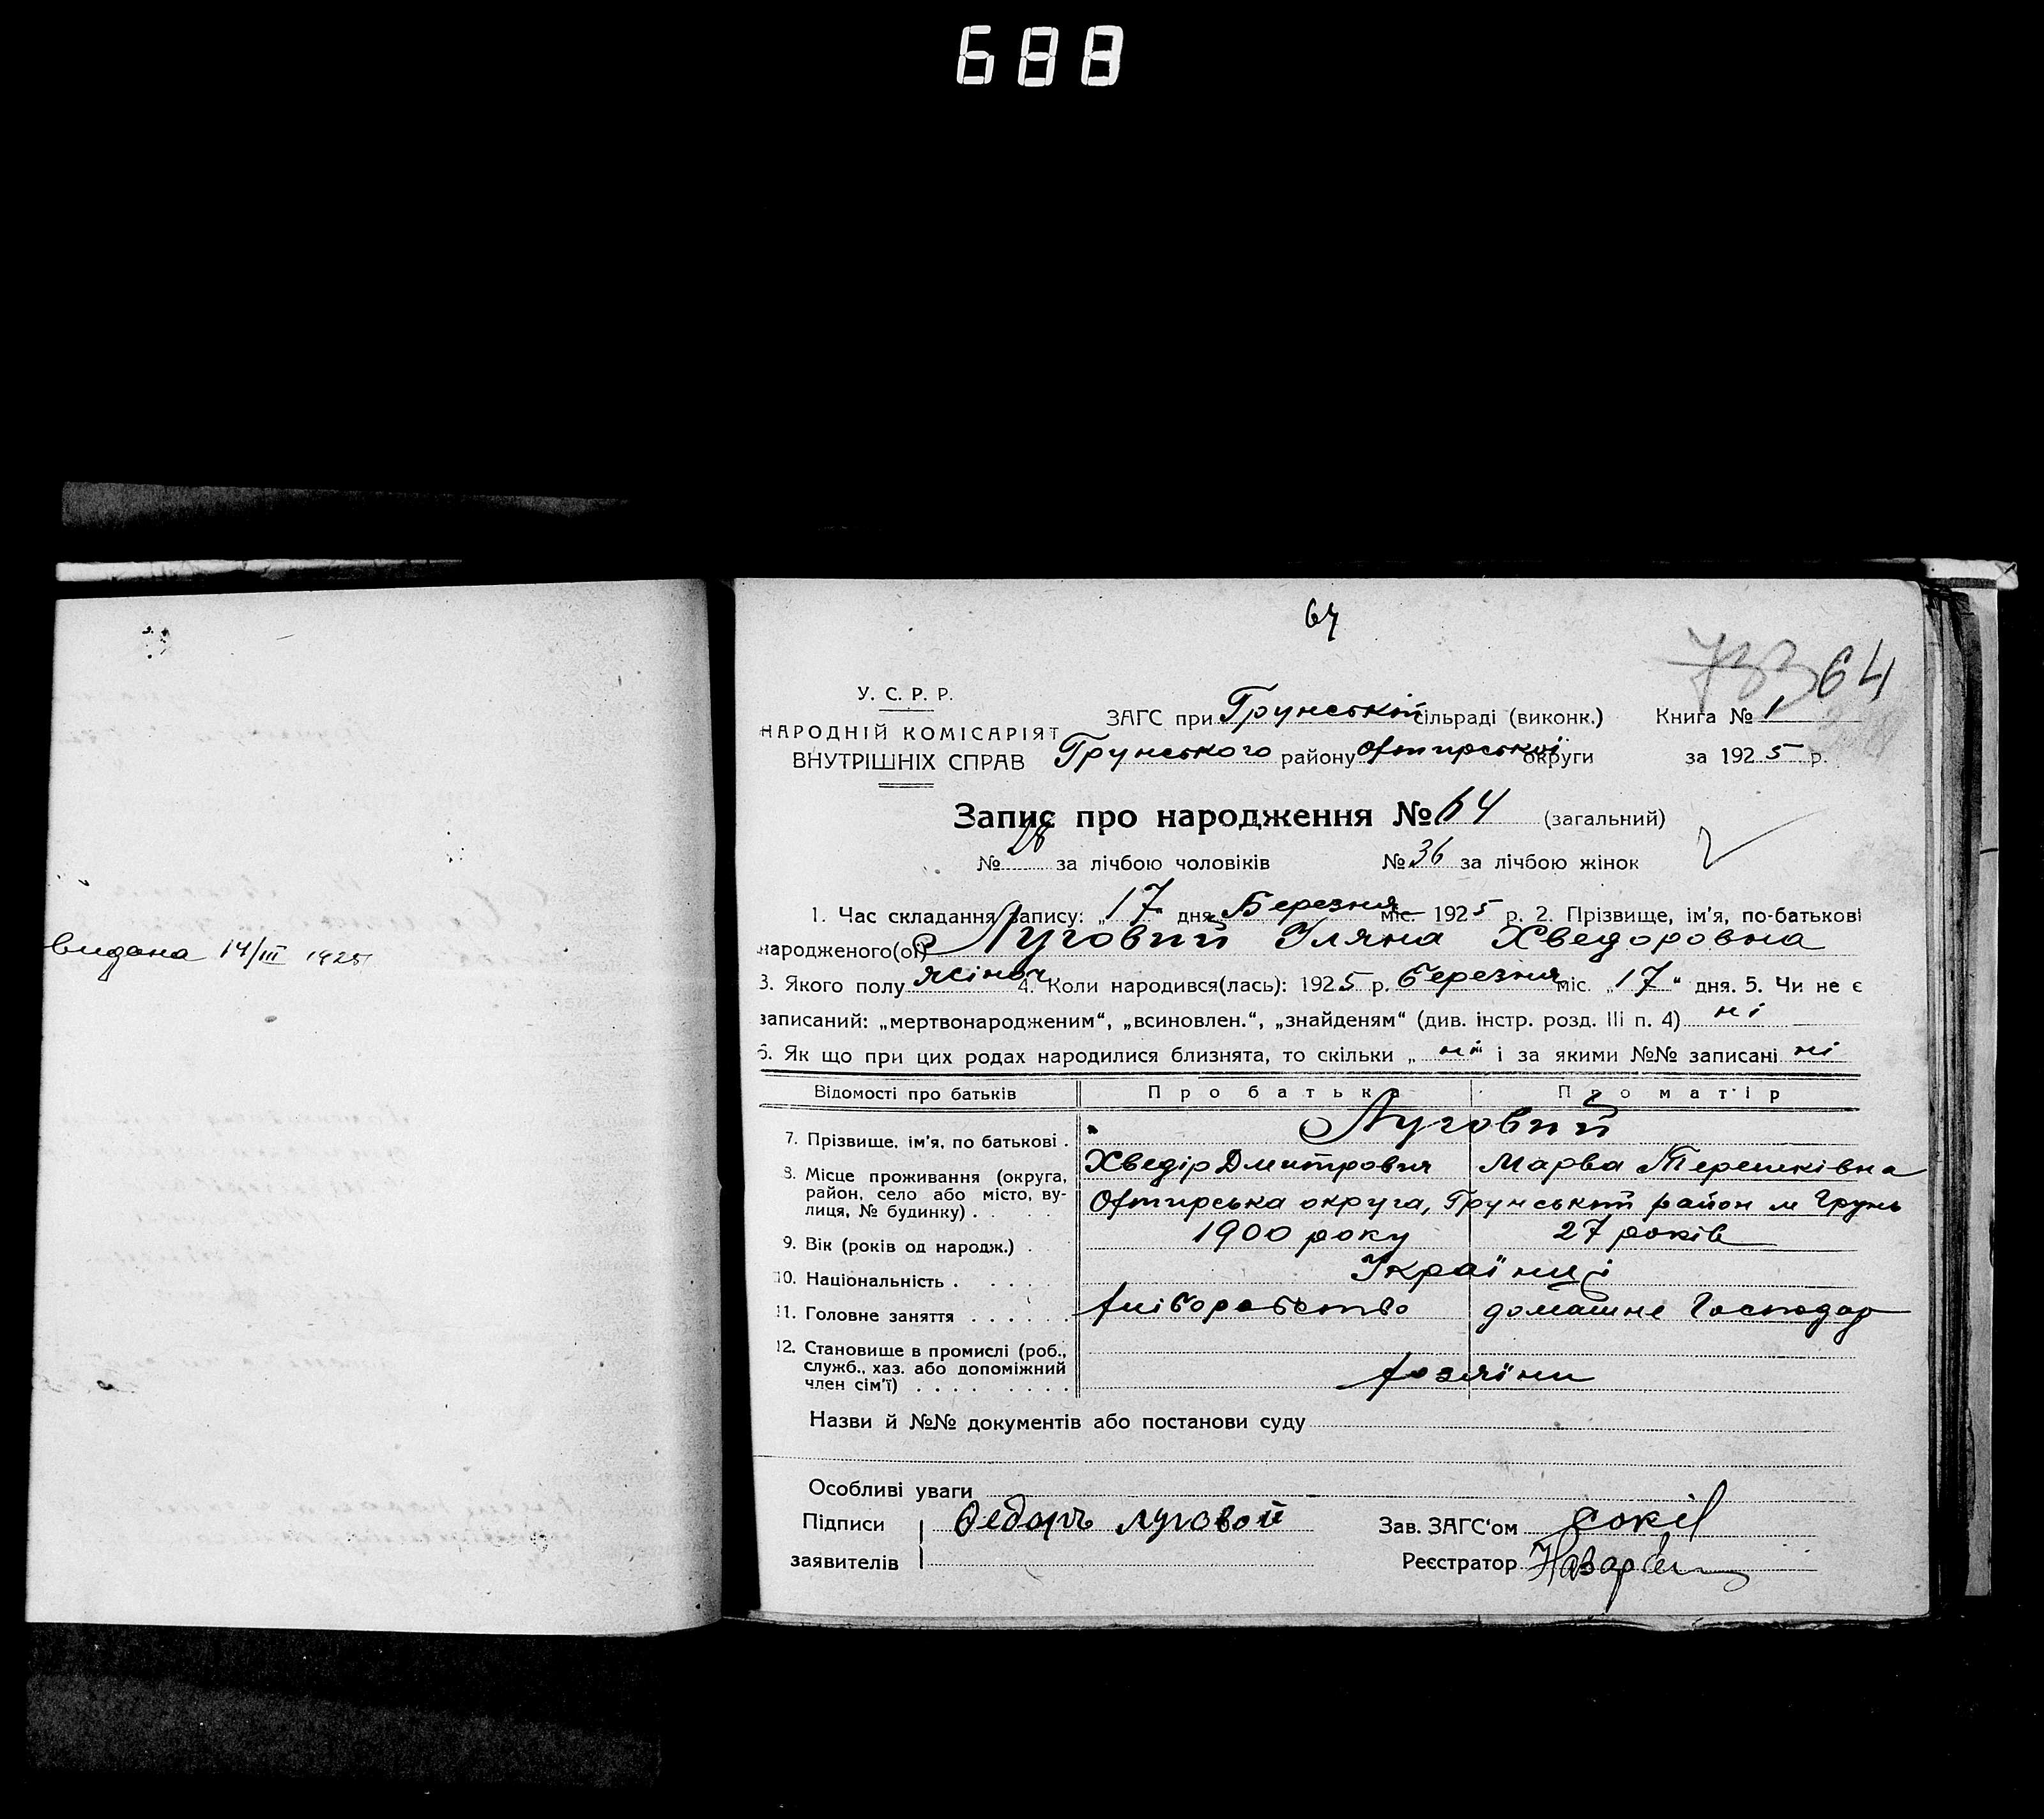 688
64
733 64
У. С. Р. Р.
НАРОДНІЙ КОМІСАРІЯТ
ВНУТРІШНІХ СПРАВ
ЗАГС при Грунській сільраді (виконк.) Книга № 1
Грунського району Охтирської округи за 1925 р.
Запис про народження № 64 (загальний)
№ 28 за лічбою чоловіків № 36 за лічбою жінок
1. Час складання запису: „17“ дня Березня міс 1925 р. 2. Прізвище, ім'я, по-батькові
народженого(ої) Луговий Уляна Хведоровна
3. Якого полу жіноч 4. Коли народився(лась): 1925 р. березня міс. „17“ дня. 5. Чи не є
записаний: „мертвонародженим“, „всиновлен.“, „знайденям“ (див. інстр. розд. III п. 4) ні
6. Як що при цих родах народилися близнята, то скільки „ні“ і за якими №№ записані ні
Відомості про батьків Про батька Про матір
7. Прізвище, ім'я, по батькові . Луговий
Хведір Дмитрович Марва Терешківна
8. Місце проживання (округа, район, село або місто, вулиця, № будинку) . Охтирська округа, Грунський район м Грунь
9. Вік (років од народж.) . 1900 року 27 років
10. Національність . Українці
11. Головне заняття . . . . . . хліборобство домашнє Господар
12. Становище в промислі (роб.,
служб., хаз. або допоміжний
член сім'ї) . . . . хозяїни
Назви й №№ документів або постанови суду
Особливі уваги
Підписи Ѳедоръ луговой Зав. ЗАГС'ом Сокіл
заявителів Реєстратор
видана 14/III 1925